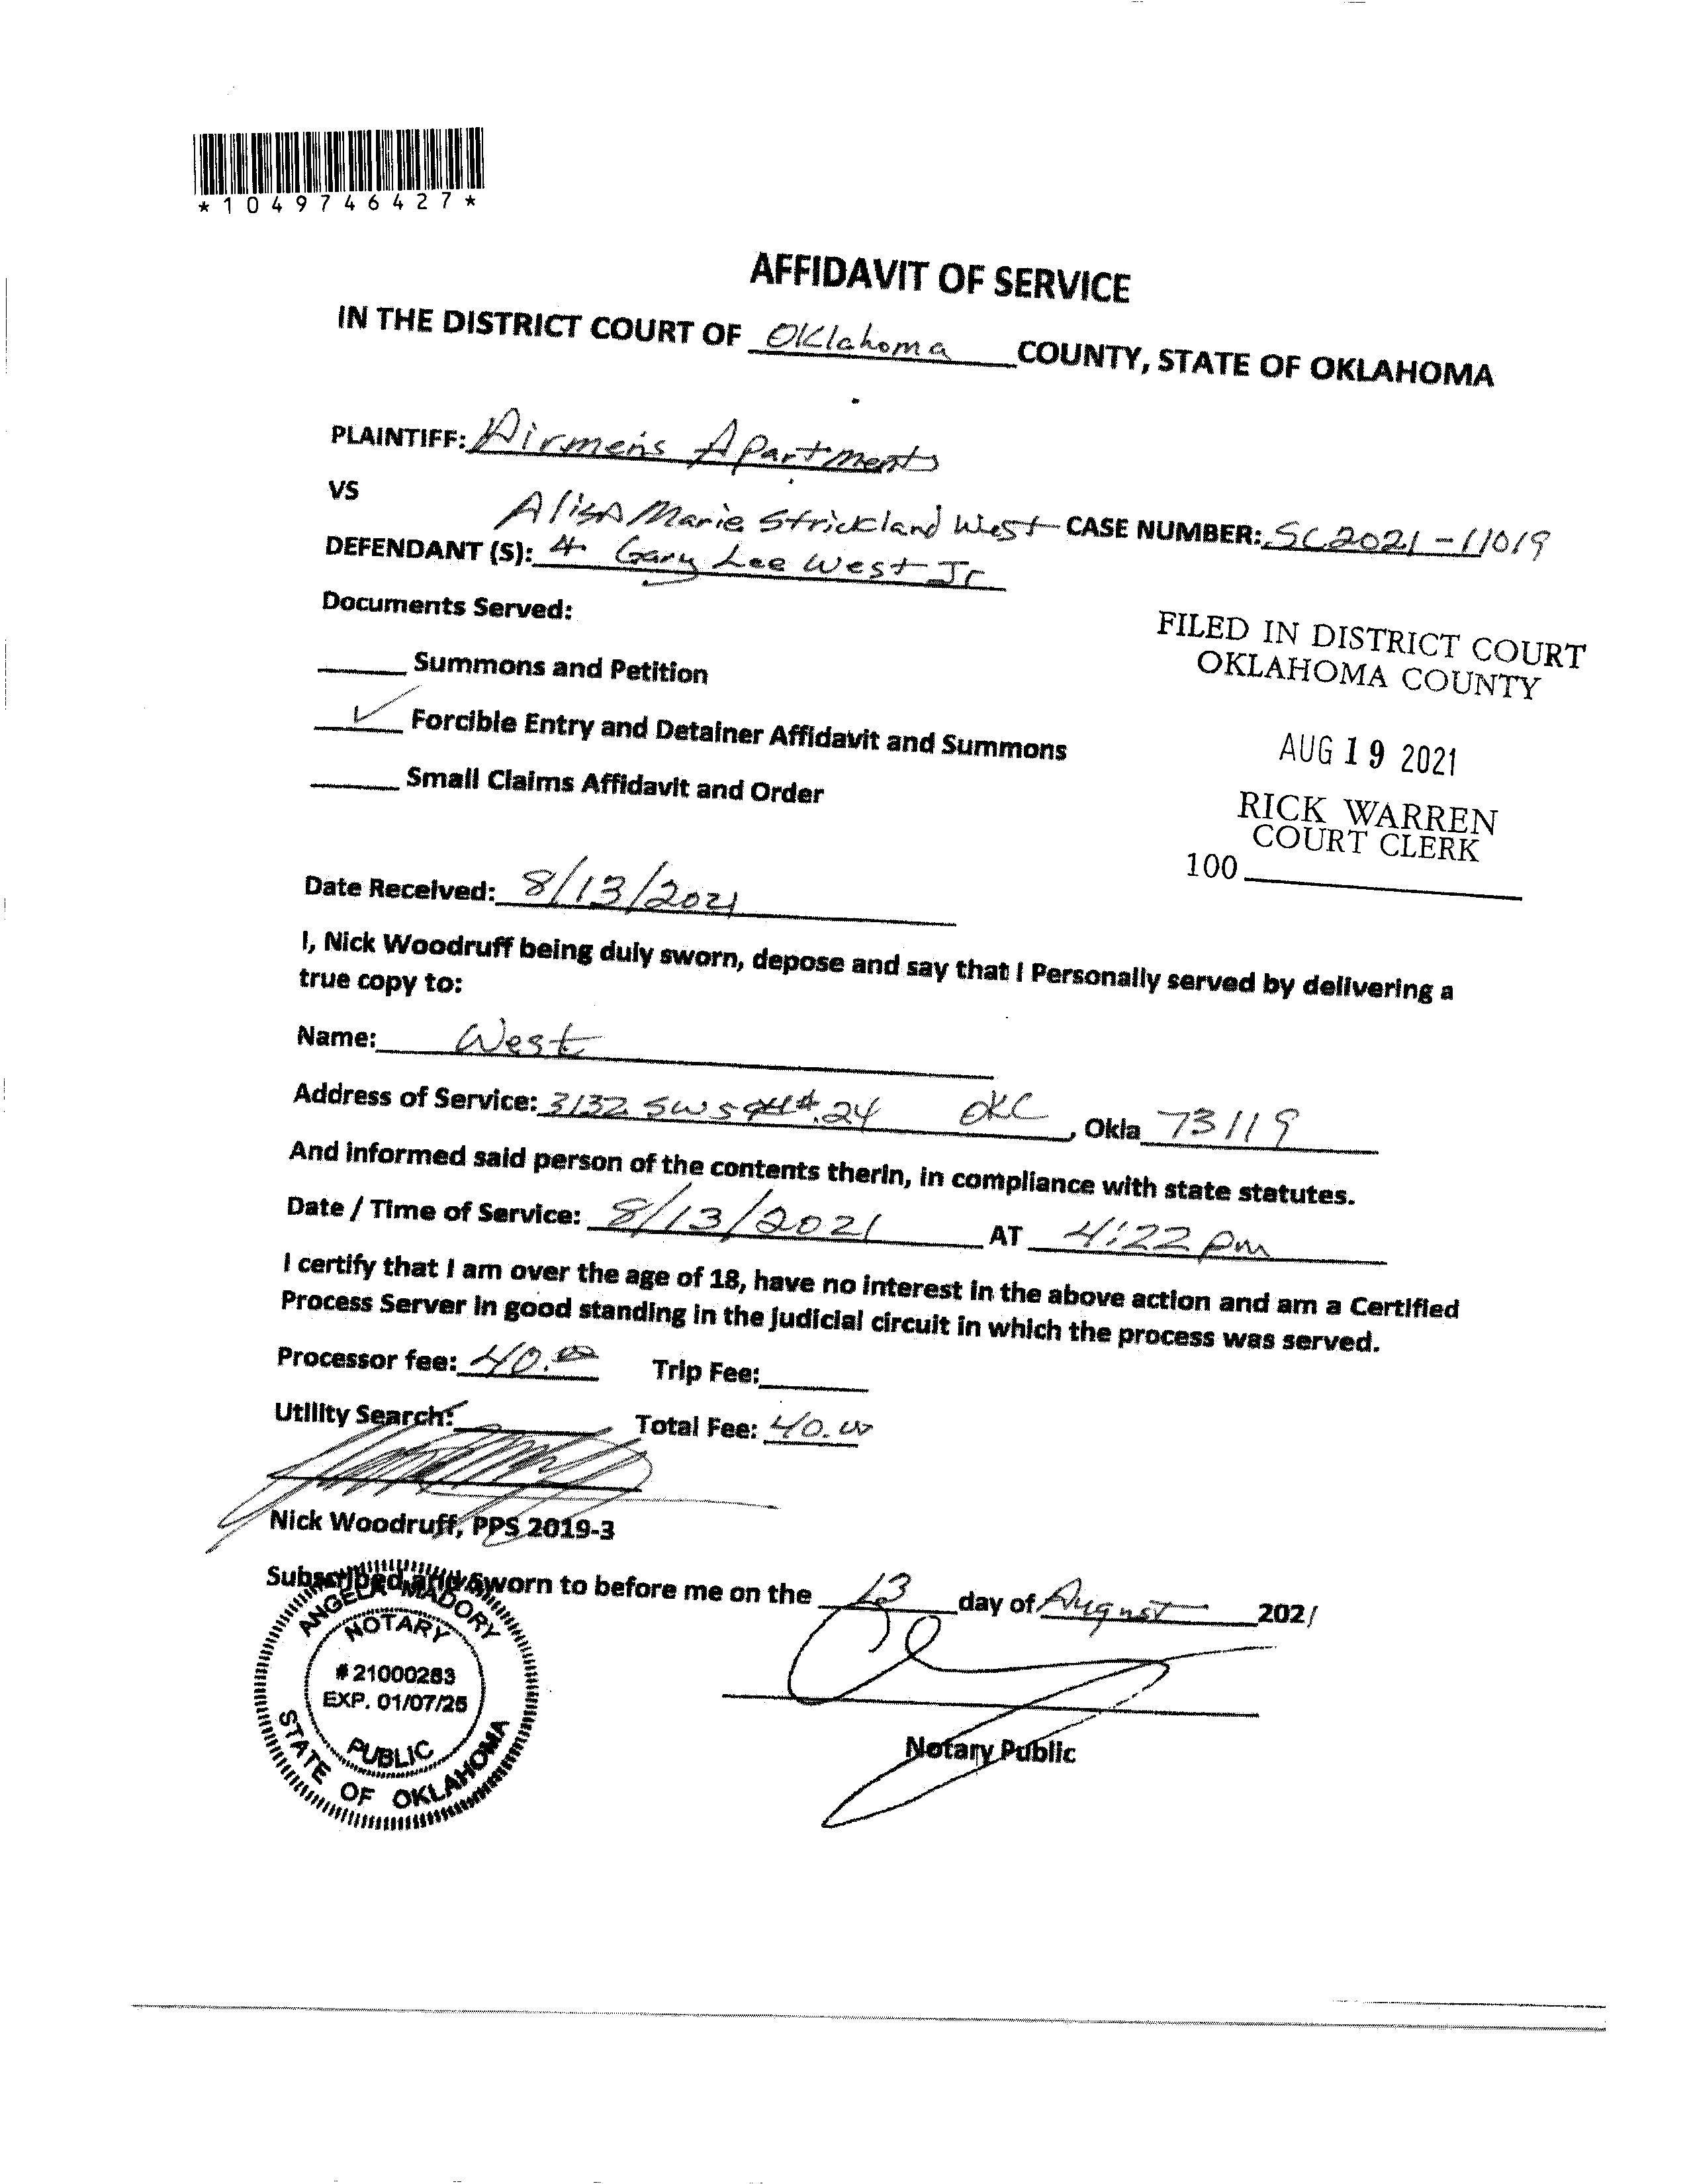 *1049746427*
AFFIDAVIT OF SERVICE
IN THE DISTRICT COURT OF Oklahoma COUNTY, STATE OF OKLAHOMA
PLAINTIFF: Airmens Apartments
VS
Alisa Marie Strickland West CASE NUMBER: SC2021-11019
DEFENDANT (S): & Gary Lee West Jr
Documents Served:
Summons and Petition
✓ Forcible Entry and Detainer Affidavit and Summons
Small Claims Affidavit and Order
FILED IN DISTRICT COURT
OKLAHOMA COUNTY
AUG 19 2021
RICK WARREN
COURT CLERK
100
Date Received: 8/13/2021
I, Nick Woodruff being duly sworn, depose and say that I Personally served by delivering a
true copy to:
Name: West
Address of Service: 3132 SW 59th #24 OKC, Okla 73119
And informed said person of the contents therin, in compliance with state statutes.
Date / Time of Service: 8/13/2021 AT 4:22 pm
I certify that I am over the age of 18, have no interest in the above action and am a Certified
Process Server in good standing in the judicial circuit in which the process was served.
Processor fee: 40.00 Trip Fee:
Utility Search: Total Fee: 40.00
Nick Woodruff, PPS 2019-3
Subscribed and Sworn to before me on the 13 day of August 2021
ANGELA MADORY
NOTARY
# 21000283
EXP. 01/07/25
PUBLIC
STATE OF OKLAHOMA
Notary Public